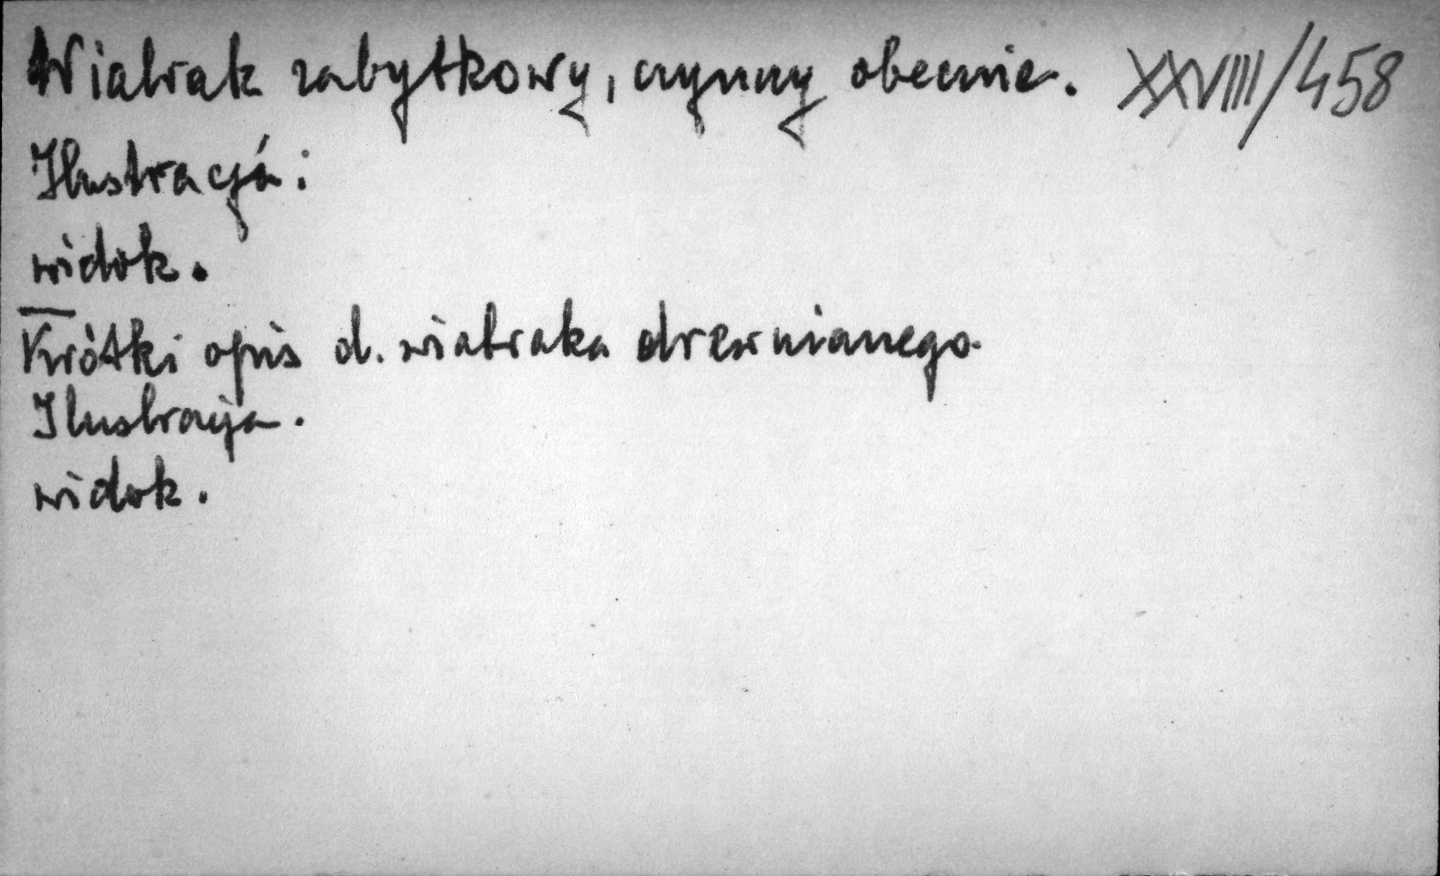 Wiatrak zabytkowy, czynny obecnie. XXVIII/458
Ilustracja:
widok.
Krótki opis d. wiatraka drewnianego.
Ilustracja.
widok.